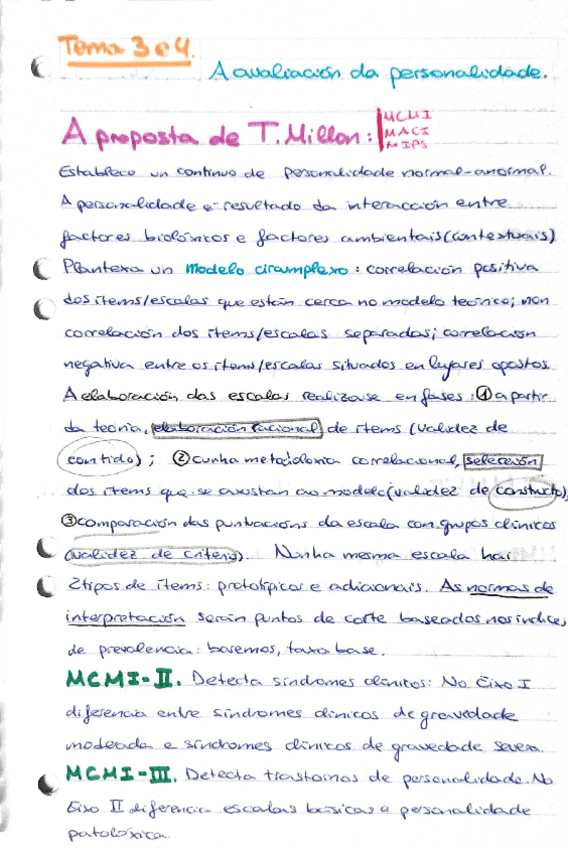 Tema 3 e 4.
A avaliación da personalidade.
A proposta de T. Millon: MCMI
MACI
MIPS
Establece un continuo de personalidade normal-anormal.
A personalidade é resultado da interacción entre
factores biolóxicos e factores ambientais (contextuais)
Plantexa un modelo circumplexo: correlación positiva
dos items/escalas que están cerca no modelo teórico; non
correlación dos items/escalas separadas; correlación
negativa entre os items/escalas situados en lugares opostos.
A elaboración das escalas realízase en fases: ① a partir
da teoría, elaboración racional de items (validez de
contido); ② cunha metodoloxía correlacional, selección
dos items que se axustan ao modelo (validez de constructo),
③ comparación das puntuacións da escala con grupos clínicos
(validez de criterio). Nunha mesma escala hai
2 tipos de items: prototípicos e adicionais. As normas de
interpretación serán puntos de corte baseados nos índices
de prevalencia: baremos, taxa base.
MCMI-II. Detecta síndromes clínicos: No Eixo I
diferencia entre síndromes clínicos de gravedade
moderada e síndromes clínicos de gravedade severa.
MCMI-III. Detecta trastornos de personalidade. No
Eixo II diferencia escalas básicas e personalidade
patolóxica.